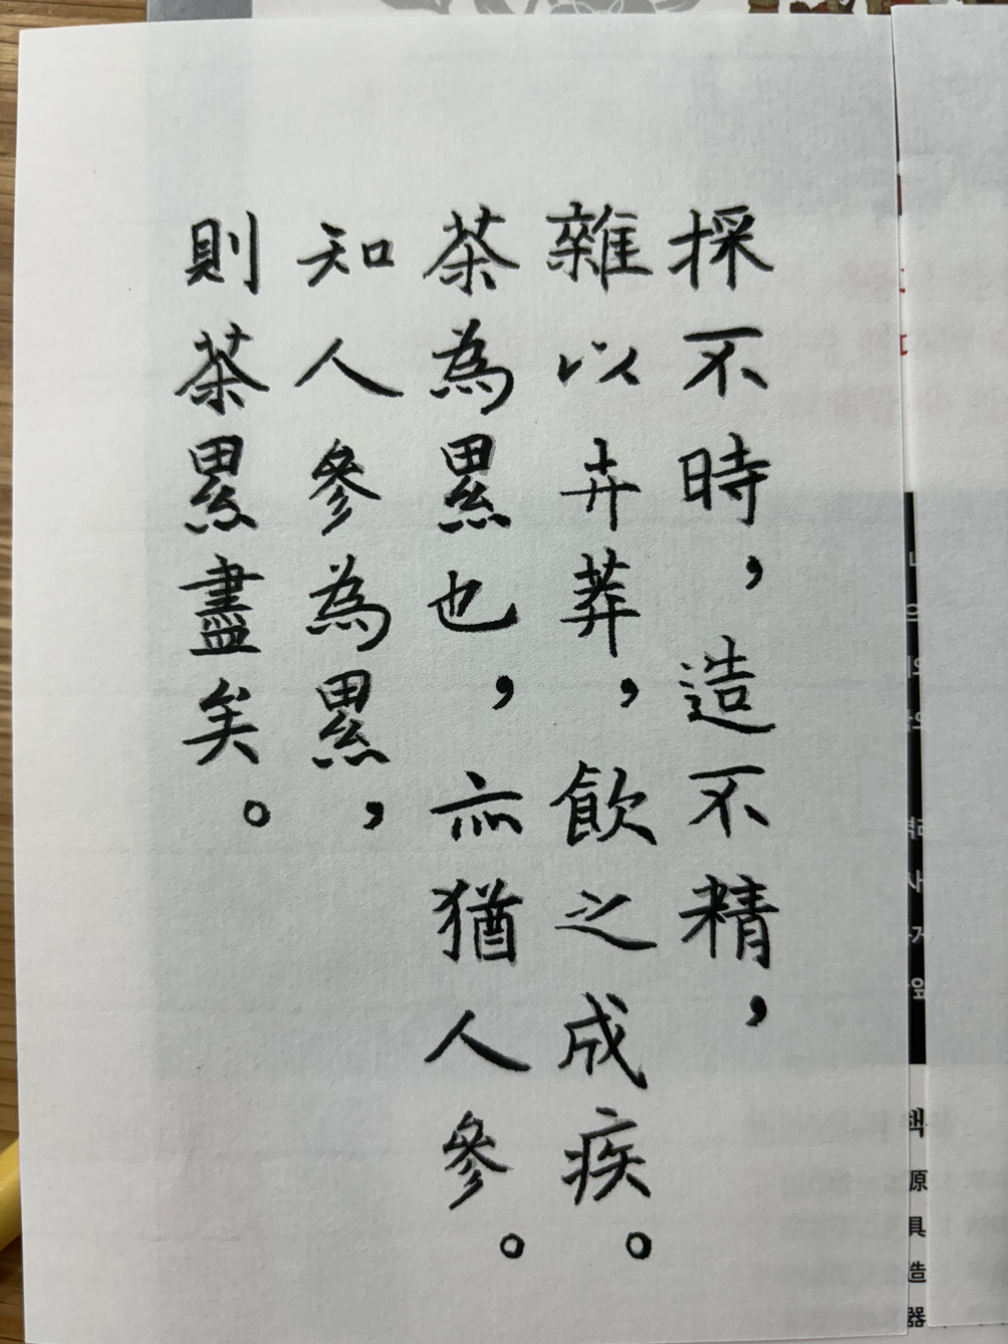 採不時，造不精，
雜以卉莽，飲之成疾。
茶為累也，亦猶人參。
知人參為累，
則茶累盡矣。
原
具
造
器